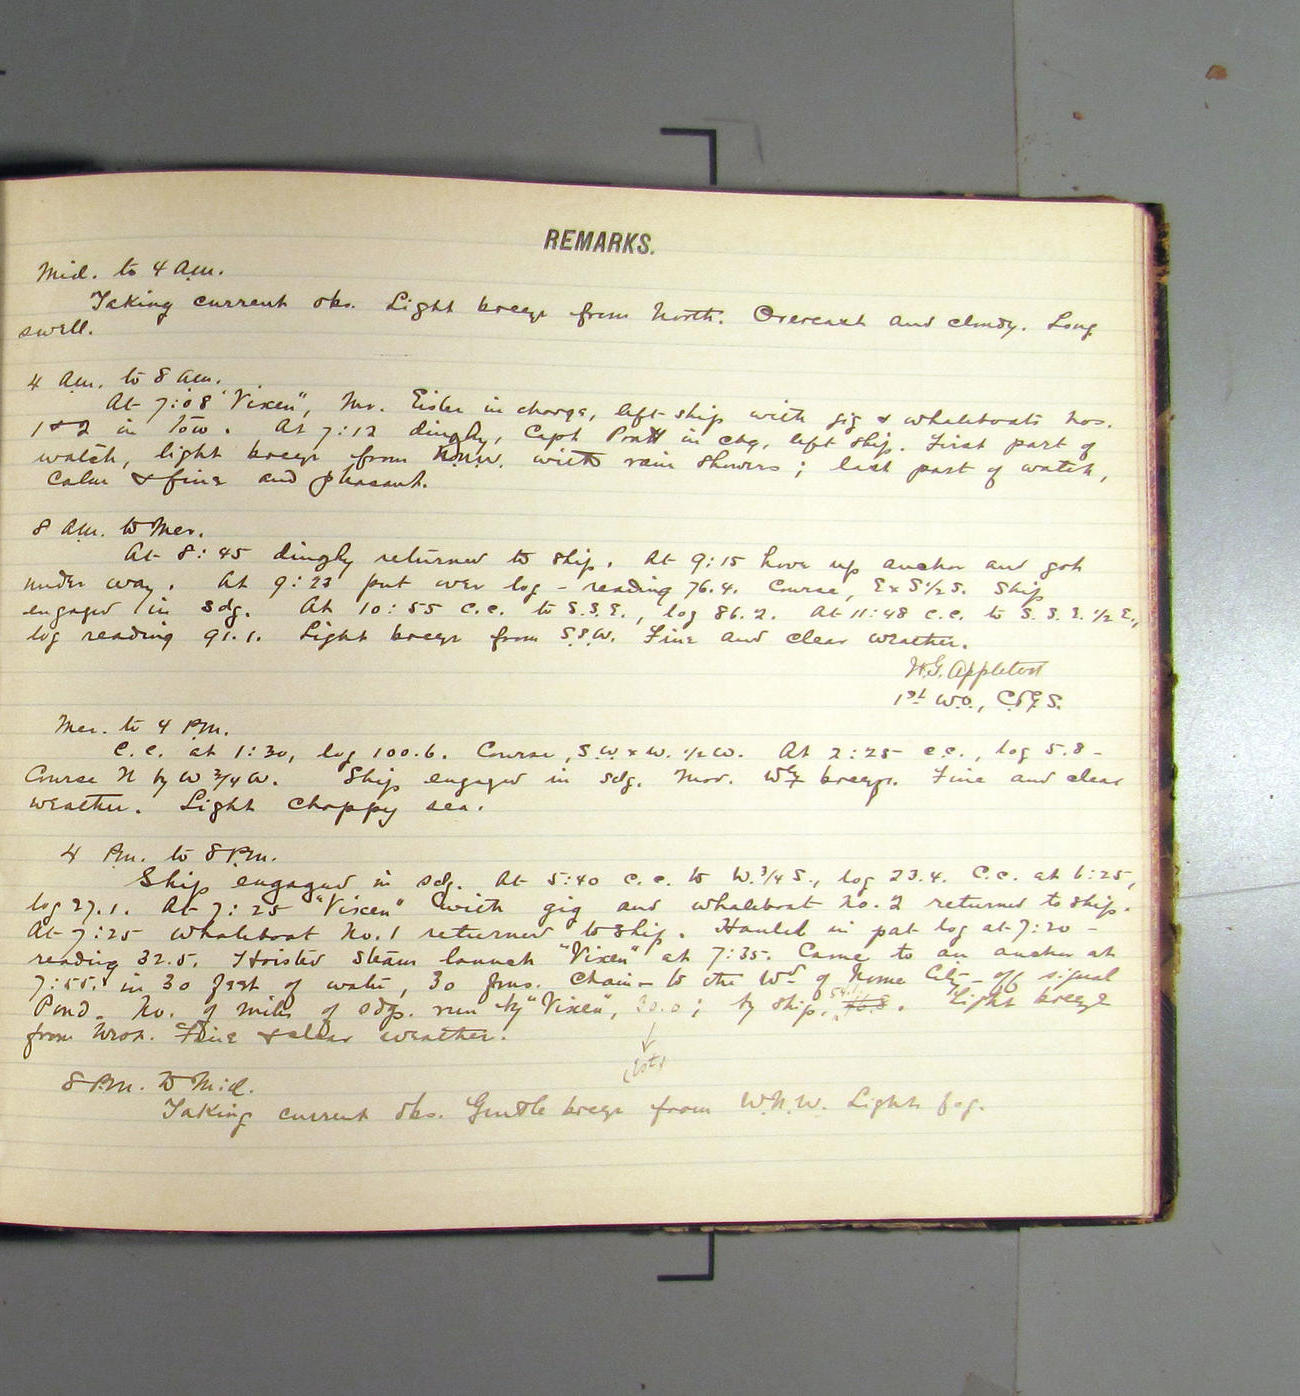 REMARKS.
Mid. to 4 a.m.
Taking current obs. Light breeze from North. Overcast and cloudy. Long
swell.
4 a.m. to 8 a.m.
At 7:08 "Vixen", Mr. Eisler in charge, left ship with gig & whaleboats Nos.
1 & 2 in tow. At 7:12 dinghy, Capt Pratt in chg, left ship. First part of
watch, light breeze from N.N.W. with rain showers; last part of watch,
calm & fine and pleasant.
8 a.m. to Mer.
At 8:45 dinghy returned to ship. At 9:15 hove up anchor and got
under way. At 9:23 put over log - reading 76.4. Course, ExS1/2S. Ship
engaged in sdg. At 10:55 c.c. to S.S.E., log 86.2. At 11:48 c.c. to S.S.E.1/2E.,
log reading 91.1. Light breeze from S.S.W. Fine and clear weather.
H.G. Appleton
1st W.O., C&G.S.
Mer. to 4 P.M.
C.C. at 1:30, log 100.6. Course, S.W.xW.1/2W. At 2:25 c.c., log 5.8 -
Course N by W 3/4 W. Ship engaged in sdg. Mod. Wly breeze. Fine and clear
weather. Light choppy sea.
4 P.M. to 8 P.M.
Ship engaged in sdg. At 5:40 c.c. to W.3/4S., log 23.4. C.C. at 6:25,
log 27.1. At 7:25 "Vixen" with gig and whaleboat No. 2 returned to ship.
At 7:25 whaleboat No. 1 returned to ship. Hauled in pat log at 7:20 -
reading 32.5. Hoisted steam launch "Vixen" at 7:35. Came to an anchor at
7:55. in 30 feet of water, 30 fms. chain - to the Wd of Nome City off signal
Pond. No. of miles of sdgs. run by "Vixen", 30.0; by ship, . Light breeze
from West. Fine & clear weather.
8 P.M. to Mid.
Taking current obs. Gentle breeze from W.N.W. Light fog.